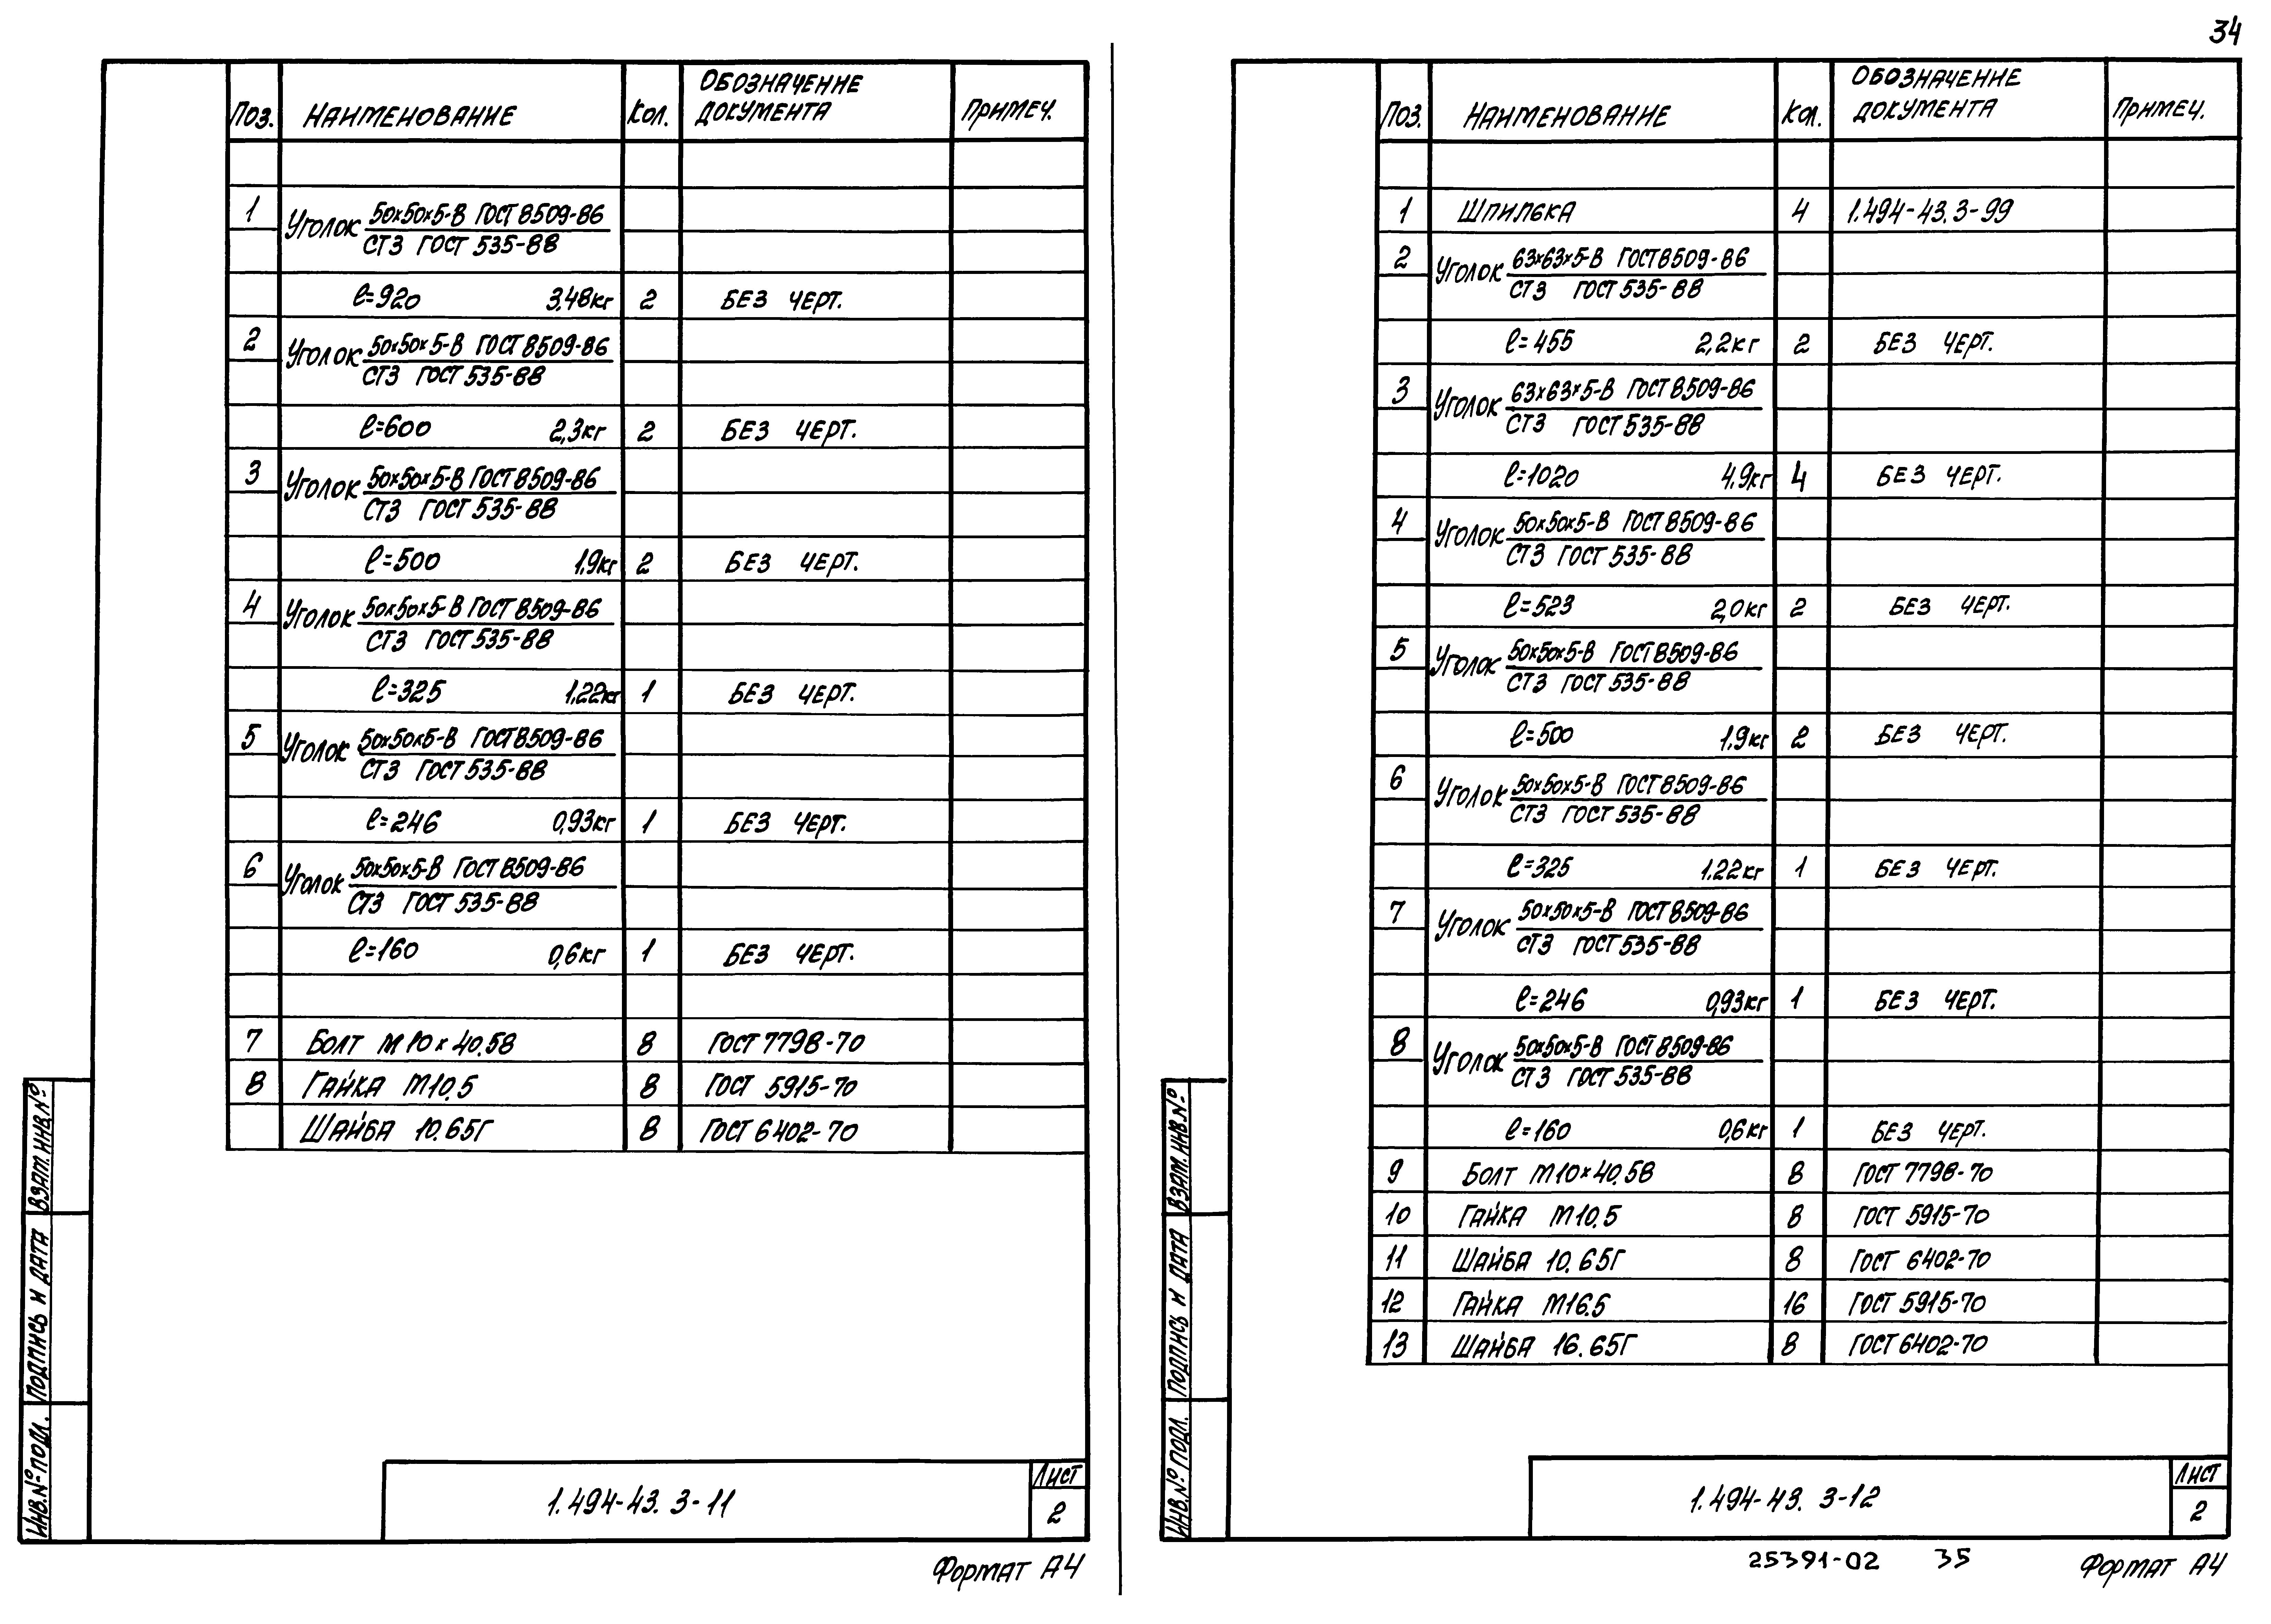 34
Поз. Наименование Кол. Обозначение документа Примеч.
1 Уголок 50х50х5-В ГОСТ 8509-86
Ст3 ГОСТ 535-88
ℓ=920 3,48кг 2 Без черт.
2 Уголок 50х50х5-В ГОСТ 8509-86
Ст3 ГОСТ 535-88
ℓ=600 2,3кг 2 Без черт.
3 Уголок 50х50х5-В ГОСТ 8509-86
Ст3 ГОСТ 535-88
ℓ=500 1,9кг 2 Без черт.
4 Уголок 50х50х5-В ГОСТ 8509-86
Ст3 ГОСТ 535-88
ℓ=325 1,22кг 1 Без черт.
5 Уголок 50х50х5-В ГОСТ 8509-86
Ст3 ГОСТ 535-88
ℓ=246 0,93кг 1 Без черт.
6 Уголок 50х50х5-В ГОСТ 8509-86
Ст3 ГОСТ 535-88
ℓ=160 0,6кг 1 Без черт.
7 Болт М10х40.58 8 ГОСТ 7798-70
8 Гайка М10.5 8 ГОСТ 5915-70
Шайба 10.65Г 8 ГОСТ 6402-70
Взам. инв. №
Подпись и дата
Инв. № подл.
1.494-43. 3-11
Лист
2
Формат А4
Поз. Наименование Кол. Обозначение документа Примеч.
1 Шпилька 4 1.494-43.3-99
2 Уголок 63х63х5-В ГОСТ 8509-86
Ст3 ГОСТ 535-88
ℓ=455 2,2кг 2 Без черт.
3 Уголок 63х63х5-В ГОСТ 8509-86
Ст3 ГОСТ 535-88
ℓ=1020 4,9кг 4 Без черт.
4 Уголок 50х50х5-В ГОСТ 8509-86
Ст3 ГОСТ 535-88
ℓ=523 2,0кг 2 Без черт.
5 Уголок 50х50х5-В ГОСТ 8509-86
Ст3 ГОСТ 535-88
ℓ=500 1,9кг 2 Без черт.
6 Уголок 50х50х5-В ГОСТ 8509-86
Ст3 ГОСТ 535-88
ℓ=325 1.22кг 1 Без черт.
7 Уголок 50х50х5-В ГОСТ 8509-86
Ст3 ГОСТ 535-88
ℓ=246 0,93кг 1 Без черт.
8 Уголок 50х50х5-В ГОСТ 8509-86
Ст3 ГОСТ 535-88
ℓ=160 0,6кг 1 Без черт.
9 Болт М10х40.58 8 ГОСТ 7798-70
10 Гайка М10.5 8 ГОСТ 5915-70
11 Шайба 10.65Г 8 ГОСТ 6402-70
12 Гайка М16.5 16 ГОСТ 5915-70
13 Шайба 16.65Г 8 ГОСТ 6402-70
Взам. инв. №
Подпись и дата
Инв. № подл.
1.494-43. 3-12
Лист
2
25391-02 35 Формат А4